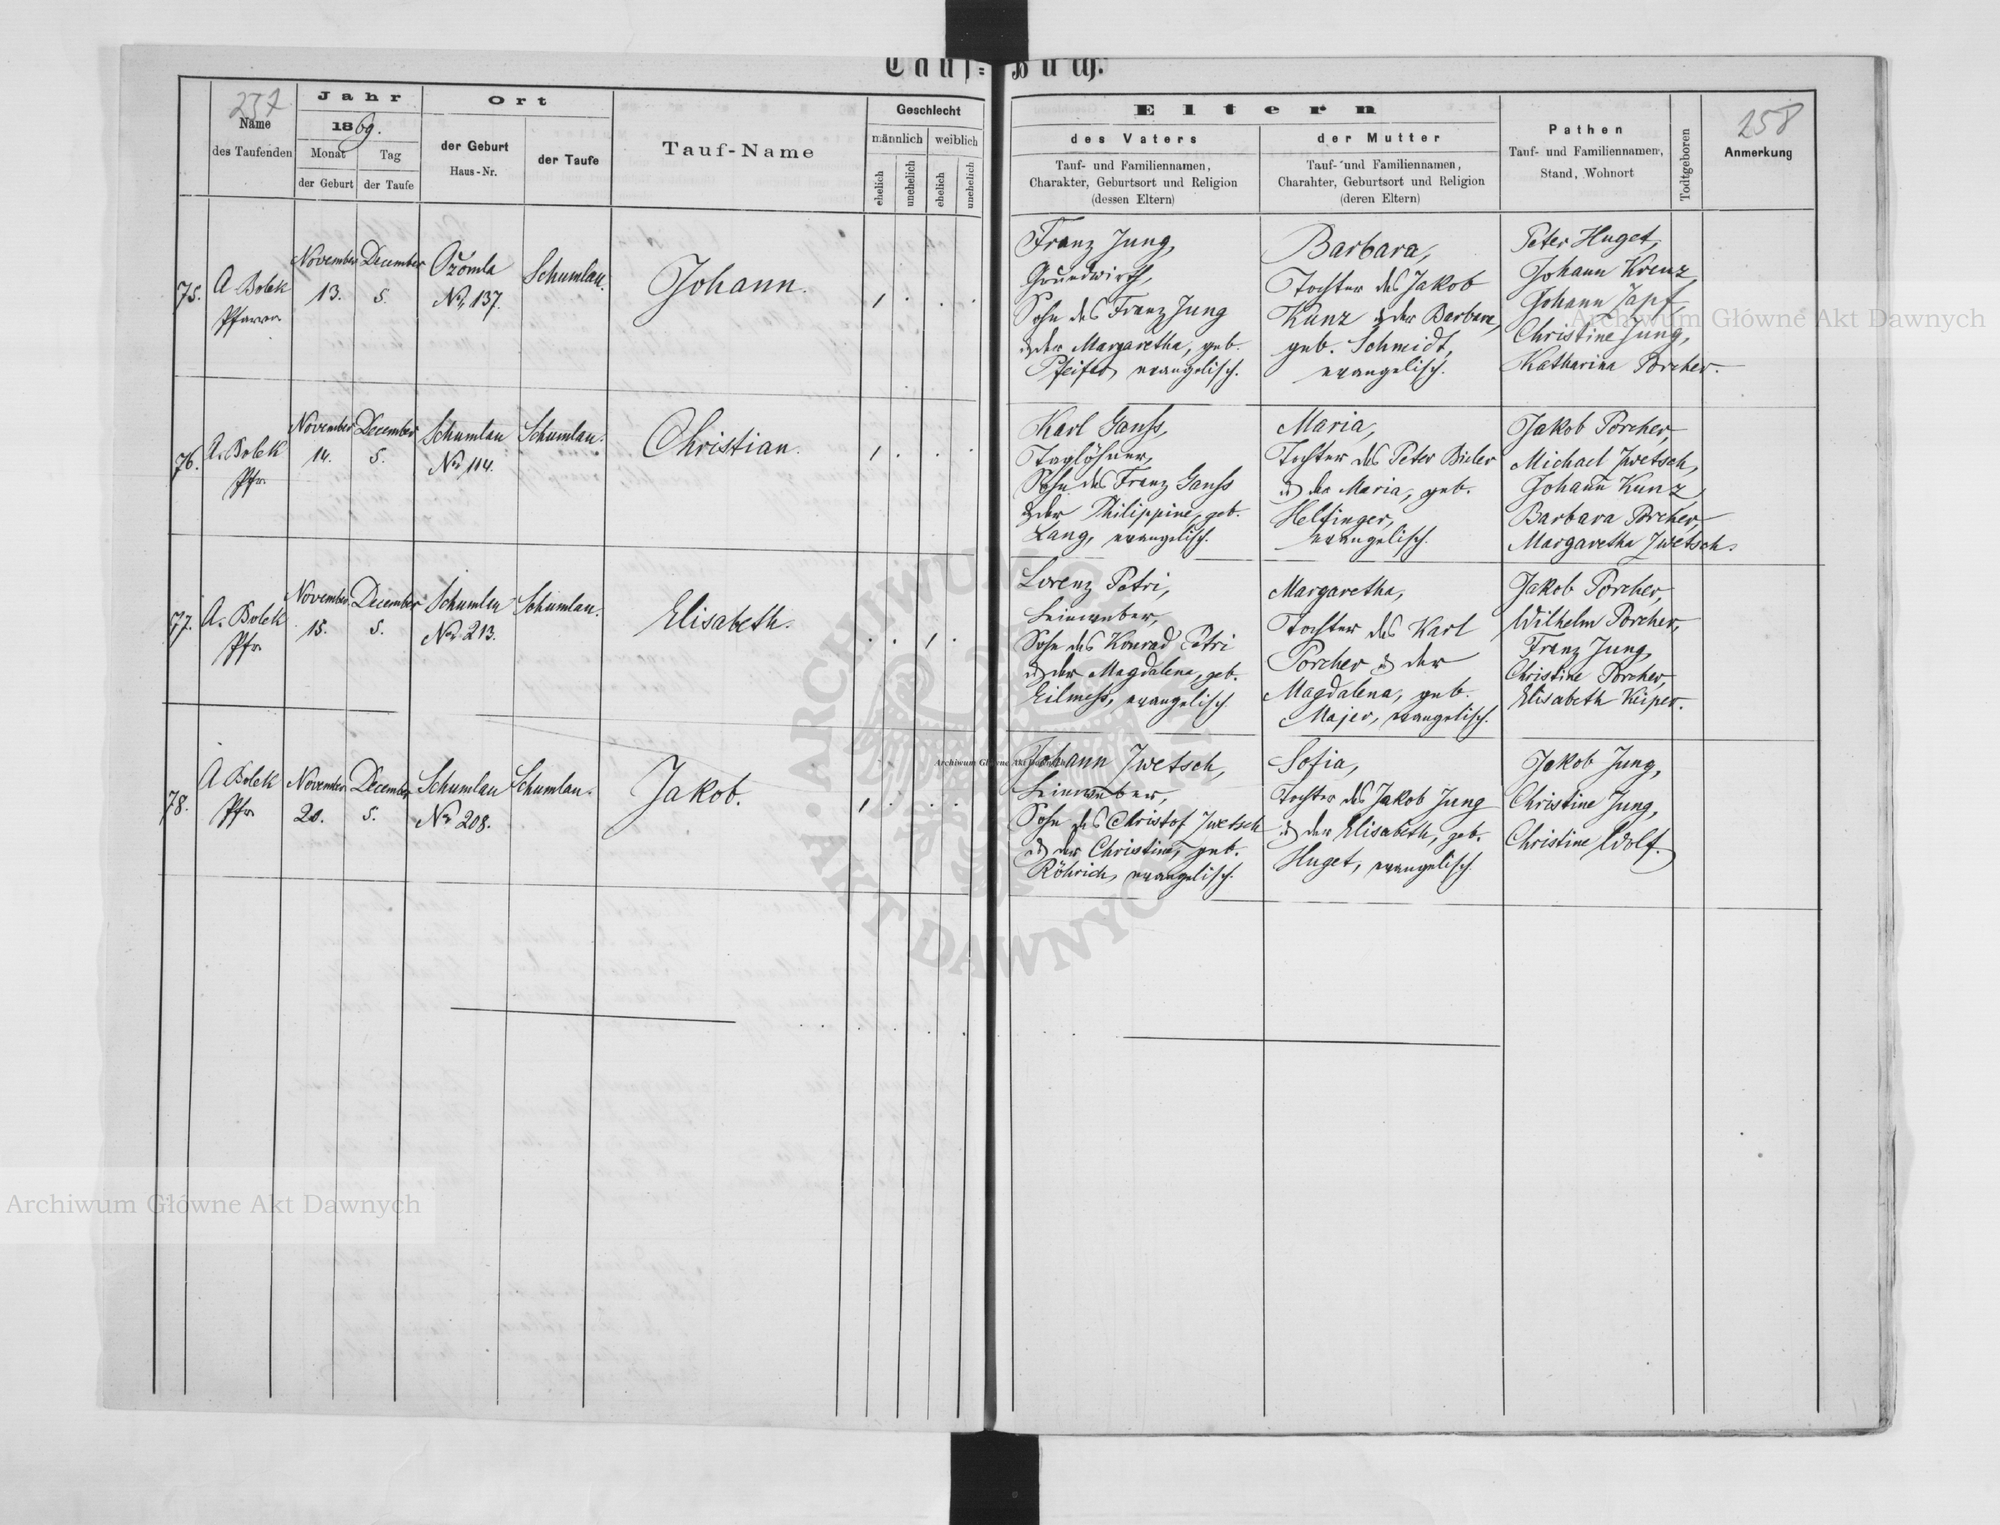 Tauf=Buch.
257
Name
des Taufenden
Jahr
1869.
Monat
Tag
der Geburt
der Taufe
Ort
der Geburt
Haus-Nr.
der Taufe
Tauf-Name
Geschlecht
männlich
weiblich
ehelich
unehelich
ehelich
unehelich
Eltern
des Vaters
Tauf- und Familiennamen,
Charakter, Geburtsort und Religion
(dessen Eltern)
der Mutter
Tauf- und Familiennamen,
Charahter, Geburtsort und Religion
(deren Eltern)
Pathen
Tauf- und Familiennamen,
Stand, Wohnort
Todtgeboren
258
Anmerkung
75.
A Bolek
Pfarrer
November
13.
December
5.
Ożomla
Nr. 137.
Schumlau.
Johann.
Franz Jung,
Grundwirth,
Sohn des Franz Jung
& der Margaretha, geb.
Pfeifer, evangelisch.
Barbara,
Tochter des Jakob
Kunz & der Barbara,
geb. Schmidt,
evangelisch.
Peter Huget,
Johann Krenz,
Johann Zapf,
Christine Jung,
Katharina Porcher.
76.
A. Bolek
Pfr.
November
14.
December
5.
Schumlau
Nr. 114.
Schumlau.
Christian.
Karl Ganss,
Taglöhner,
Sohn des Franz Ganss
& der Philippine, geb.
Lang, evangelisch.
Maria,
Tochter des Peter Bieler
& der Maria, geb.
Helfinger,
evangelisch.
Jakob Porcher,
Michael Zwetsch,
Johann Kunz,
Barbara Porcher,
Margaretha Zwetsch.
77.
A. Bolek
Pfr.
November
15.
December
5.
Schumlau
Nr. 213.
Schumlau.
Elisabeth.
Lorenz Petri,
Leinweber,
Sohn des Konrad Petri
& der Magdalena, geb.
Eilmess, evangelisch.
Margaretha,
Tochter des Karl
Porcher & der
Magdalena, geb.
Majer, evangelisch.
Jakob Porcher,
Wilhelm Porcher,
Franz Jung,
Christine Porcher,
Elisabeth Küper.
78.
A Bolek
Pfr.
November
20.
December
5.
Schumlau
Nr. 208.
Schumlau.
Jakob.
Johann Zwetsch,
Leinweber,
Sohn des Christof Zwetsch
& der Christina, geb.
Röhrich, evangelisch.
Sofia,
Tochter des Jakob Jung
& der Elisabeth, geb.
Huget, evangelisch.
Jakob Jung,
Christine Jung,
Christine Wolf.
Archiwum Główne Akt Dawnych
Archiwum Główne Akt Dawnych
Archiwum Główne Akt Dawnych